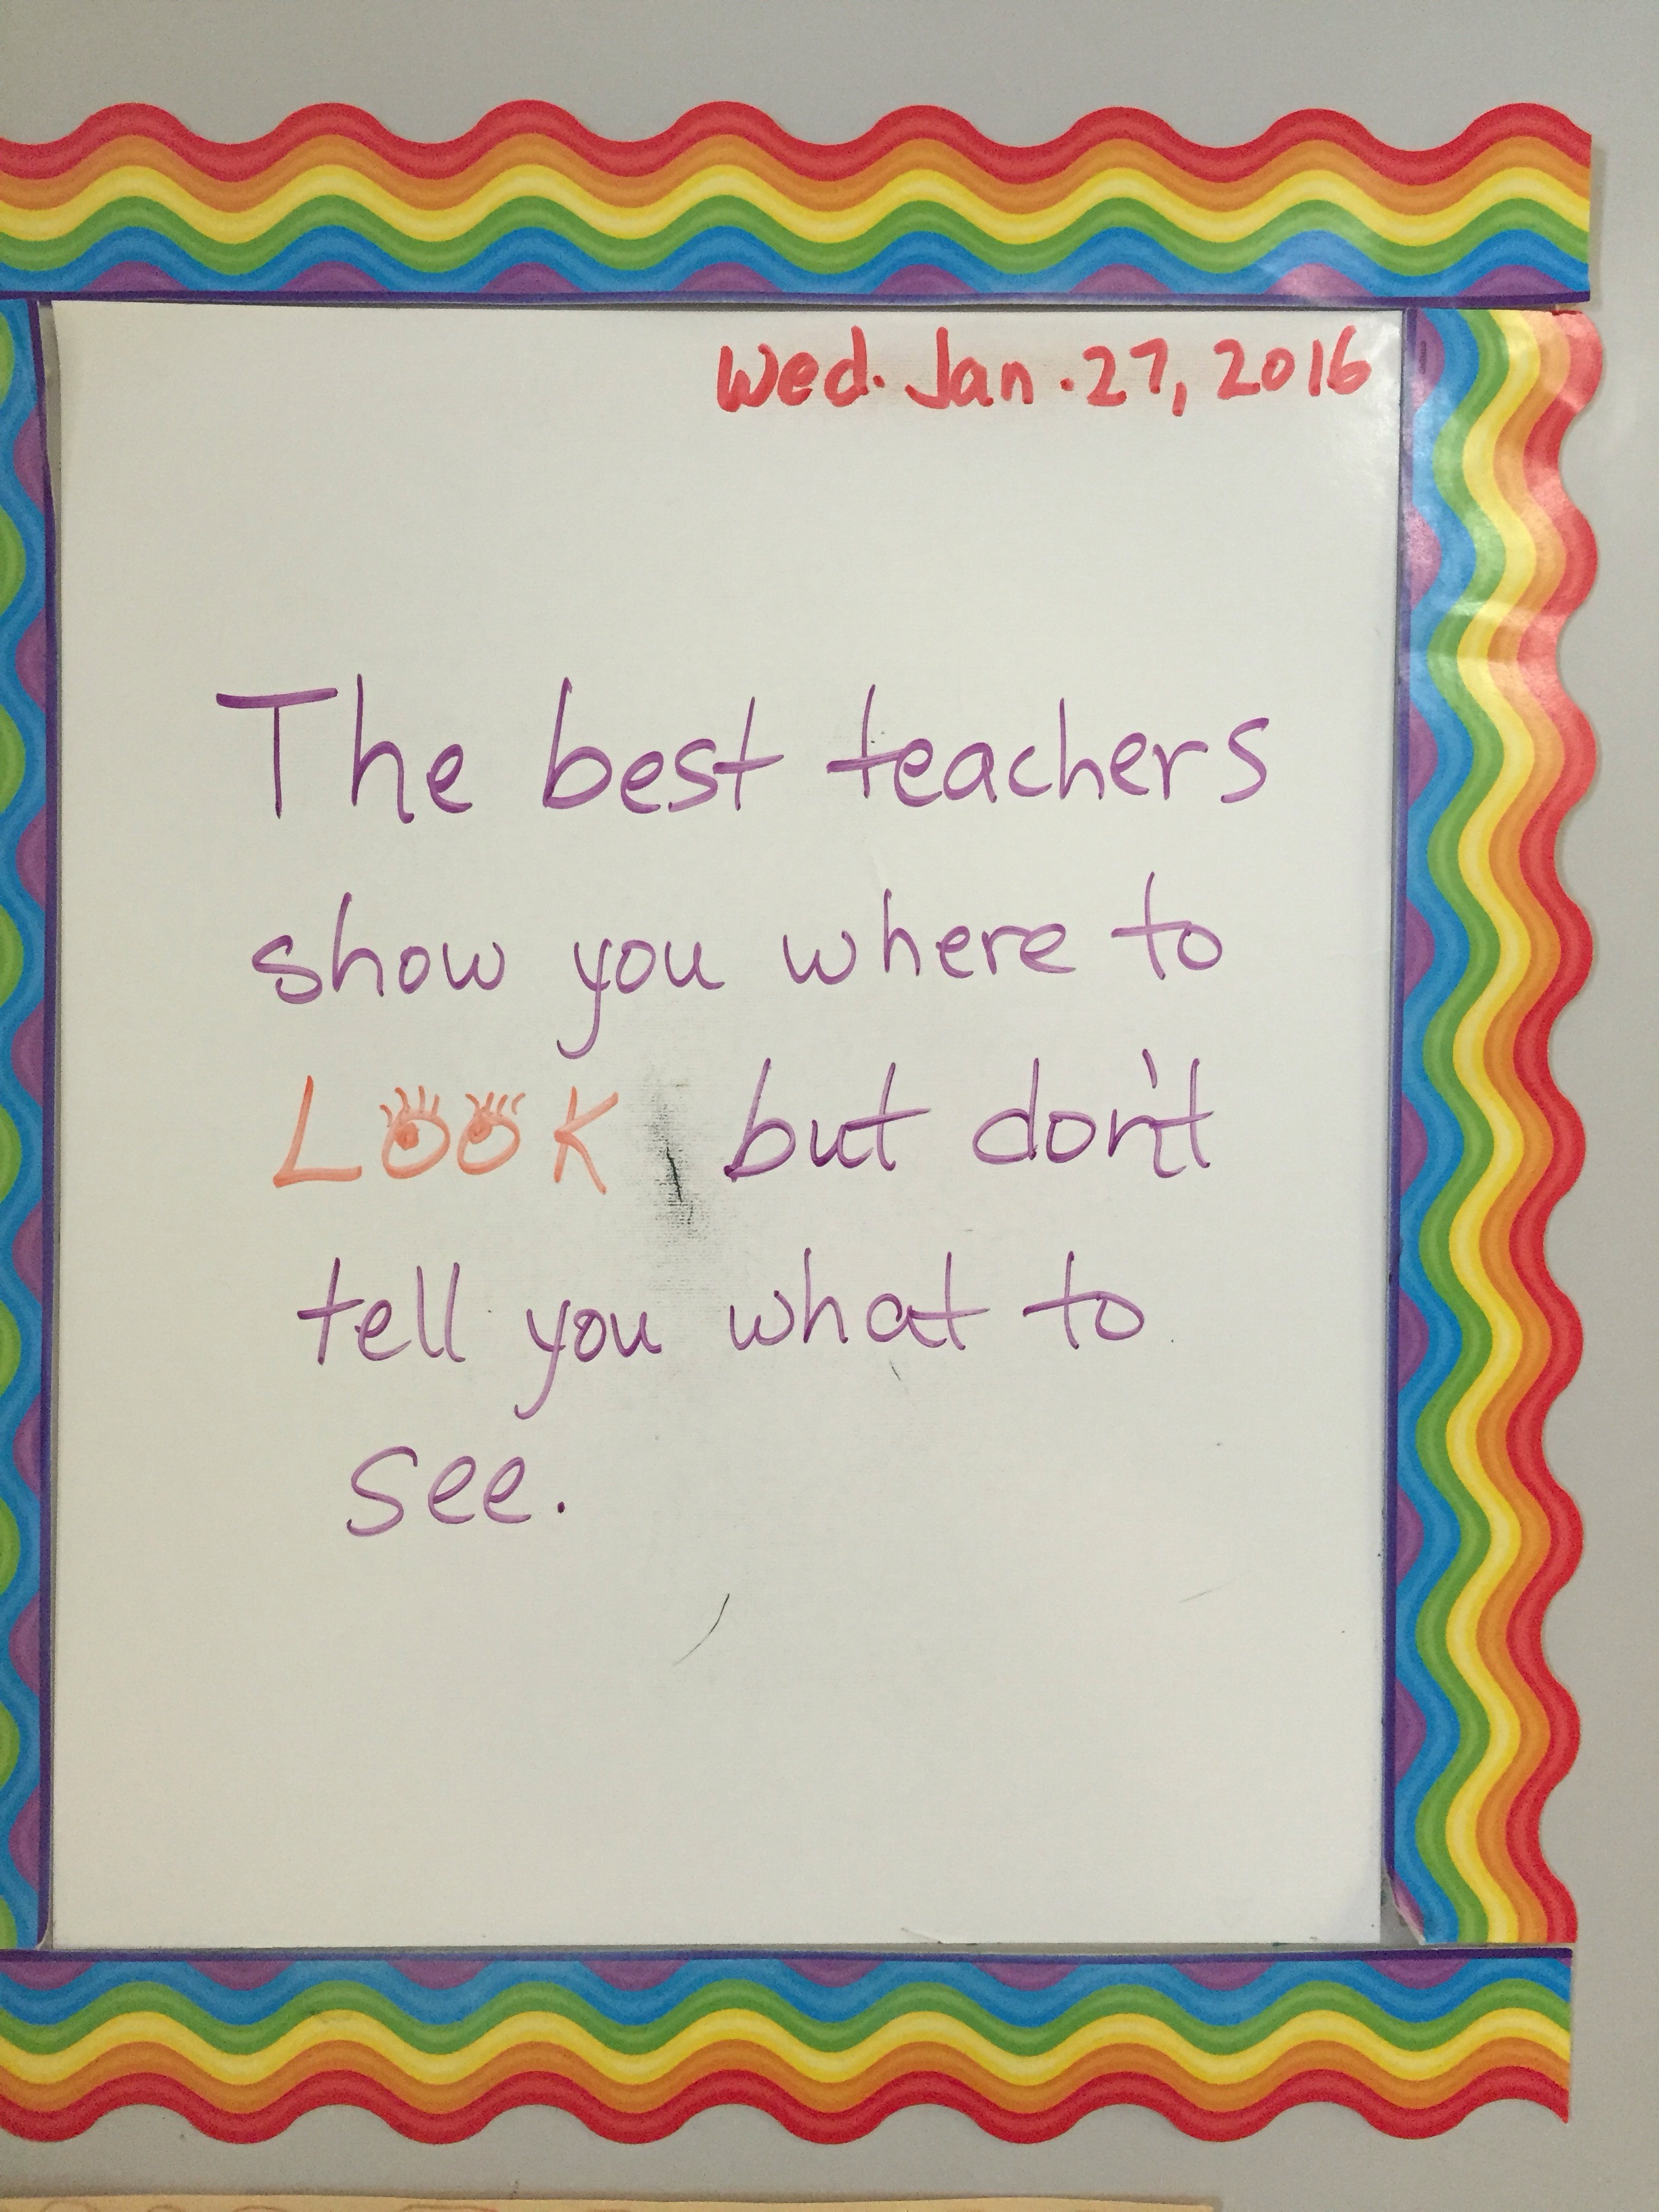 Wed. Jan. 27, 2016
The best teachers
show you where to
LOOK, but don't
tell you what to
see.